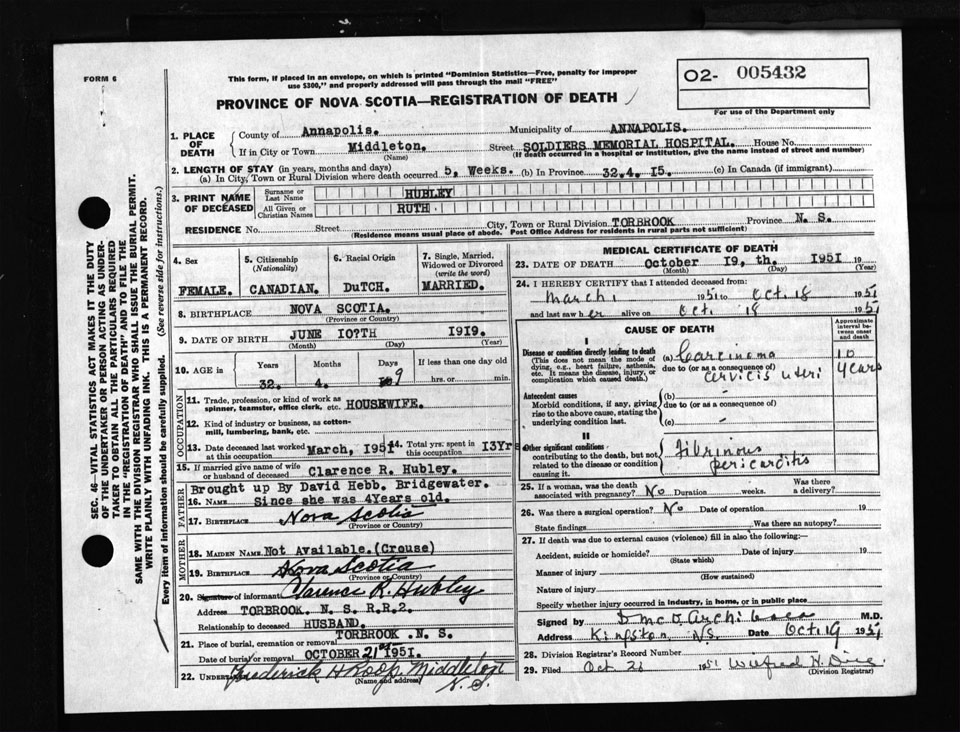 FORM 6
This form, if placed in an envelope, on which is printed "Dominion Statistics—Free, penalty for improper
use $300," and properly addressed will pass through the mail "FREE"
O2- 005432
For use of the Department only
PROVINCE OF NOVA SCOTIA—REGISTRATION OF DEATH
SEC. 46—VITAL STATISTICS ACT MAKES IT THE DUTY
OF THE UNDERTAKER OR PERSON ACTING AS UNDER-
TAKER TO OBTAIN ALL THE PARTICULARS REQUIRED
IN THE "REGISTRATION OF DEATH" AND TO FILE THE
SAME WITH THE DIVISION REGISTRAR WHO SHALL ISSUE THE BURIAL PERMIT.
WRITE PLAINLY WITH UNFADING INK. THIS IS A PERMANENT RECORD.
Every item of information should be carefully supplied. (See reverse side for instructions.)
1. PLACE OF DEATH
County of Annapolis. Municipality of ANNAPOLIS.
If in City or Town Middleton. Street SOLDIERS MEMORIAL HOSPITAL. House No.
(Name) (If death occurred in a hospital or institution, give the name instead of street and number)
2. LENGTH OF STAY (in years, months and days)
(a) In City, Town or Rural Division where death occurred 5, Weeks. (b) In Province 32.4. I5. (c) In Canada (if immigrant)
3. PRINT NAME OF DECEASED
Surname or Last Name HUBLEY
All Given or Christian Names RUTH
RESIDENCE No. Street City, Town or Rural Division TORBROOK Province N. S.
(Residence means usual place of abode. Post Office Address for residents in rural parts not sufficient)
4. Sex
FEMALE.
5. Citizenship
(Nationality)
CANADIAN.
6. Racial Origin
DuTCH.
7. Single, Married,
Widowed or Divorced
(write the word)
MARRIED.
8. BIRTHPLACE NOVA SCOTIA.
(Province or Country)
9. DATE OF BIRTH JUNE IO?TH I9I9.
(Month) (Day) (Year)
10. AGE IN
Years Months Days If less than one day old
32. 4. 9 hrs. or min.
OCCUPATION
11. Trade, profession, or kind of work as
spinner, teamster, office clerk, etc. HOUSEWIFE.
12. Kind of industry or business, as cotton-
mill, lumbering, bank, etc.
13. Date deceased last worked at this occupation March, I951
14. Total yrs. spent in this occupation I3Yrs
15. If married give name of wife
or husband of deceased Clarence R. Hubley.
FATHER
Brought up By David Hebb. Bridgewater.
16. NAME Since she was 4Years old.
17. BIRTHPLACE Nova Scotia
(Province or Country)
MOTHER
18. MAIDEN NAME Not Available.(Crouse)
19. BIRTHPLACE Nova Scotia
(Province or Country)
20. Signature of informant Clarence R. Hubley
Address TORBROOK. N. S. R.R.2.
Relationship to deceased HUSBAND.
21. Place of burial, cremation or removal TORBROOK .N. S.
Date of burial or removal OCTOBER 21st I951.
22. UNDERTAKER Frederick H Roop. Middleton
(Name and address) N. S.
MEDICAL CERTIFICATE OF DEATH
23. DATE OF DEATH October I9, th. I95I 19
(Month) (Day) (Year)
24. I HEREBY CERTIFY that I attended deceased from:
March 1 1951 to Oct. 18 1951
and last saw her alive on Oct. 18 1951
CAUSE OF DEATH
Approximate interval between onset and death
I
Disease or condition directly leading to death
(This does not mean the mode of
dying, e.g., heart failure, asthenia,
etc. It means the disease, injury, or
complication which caused death.)
(a) Carcinoma
due to (or as a consequence of)
cervicis uteri
10 years
Antecedent causes
Morbid conditions, if any, giving
rise to the above cause, stating the
underlying condition last.
(b) -
due to (or as a consequence of)
(c) -
II
Other significant conditions
contributing to the death, but not
related to the disease or condition
causing it.
Fibrinous
pericarditis
25. If a woman, was the death
associated with pregnancy? No Duration weeks. Was there a delivery?
26. Was there a surgical operation? No Date of operation 19
State findings Was there an autopsy?
27. If death was due to external causes (violence) fill in also the following:—
Accident, suicide or homicide? Date of injury 19
(State which)
Manner of injury
(How sustained)
Nature of injury
Specify whether injury occurred in industry, in home, or in public place
Signed by M.D.
Address Kingston, N.S. Date Oct. 19 1951
28. Division Registrar's Record Number
29. Filed Oct 26 1951 Wilfred H.
(Division Registrar)